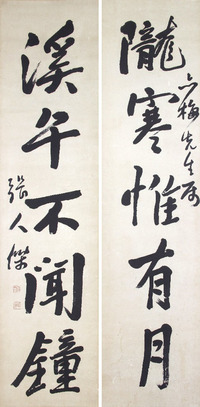 隴寒惟有月
梅先生属
溪午不聞鐘
張人傑